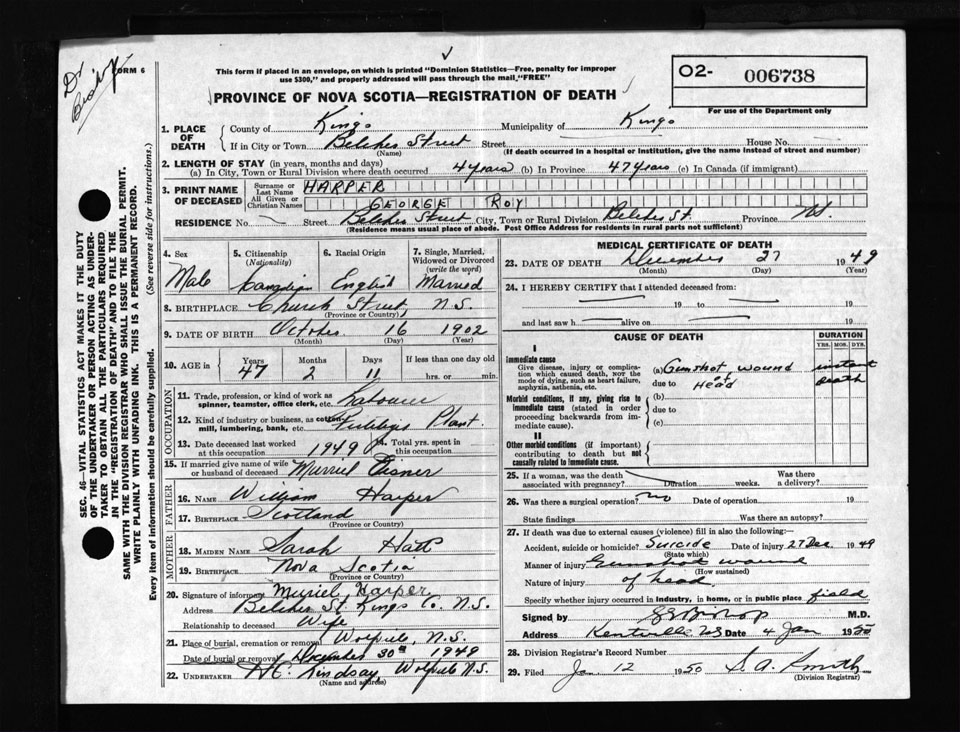 Dr
Bishop
FORM 6
This form if placed in an envelope, on which is printed "Dominion Statistics—Free, penalty for improper
use $300," and properly addressed will pass through the mail "FREE"
PROVINCE OF NOVA SCOTIA—REGISTRATION OF DEATH
O2- 006738
For use of the Department only
SEC. 46—VITAL STATISTICS ACT MAKES IT THE DUTY
OF THE UNDERTAKER OR PERSON ACTING AS UNDER-
TAKER TO OBTAIN ALL THE PARTICULARS REQUIRED
IN THE "REGISTRATION OF DEATH" AND TO FILE THE
SAME WITH THE DIVISION REGISTRAR WHO SHALL ISSUE THE BURIAL PERMIT.
WRITE PLAINLY WITH UNFADING INK. THIS IS A PERMANENT RECORD.
Every item of information should be carefully supplied. (See reverse side for instructions.)
1. PLACE OF DEATH County of Kings Municipality of Kings
If in City or Town Belcher Street Street House No.
(Name) (If death occurred in a hospital or institution, give the name instead of street and number)
2. LENGTH OF STAY (in years, months and days)
(a) In City, Town or Rural Division where death occurred 4 years (b) In Province 47 years (c) In Canada (if immigrant)
3. PRINT NAME OF DECEASED Surname or Last Name HARPER
All Given or Christian Names GEORGE ROY
RESIDENCE No. Street Belcher Street City, Town or Rural Division Belcher St. Province N.S.
(Residence means usual place of abode. Post Office Address for residents in rural parts not sufficient)
4. Sex 5. Citizenship (Nationality) 6. Racial Origin 7. Single, Married, Widowed or Divorced (write the word)
Male Canadian English Married
8. BIRTHPLACE Church Street, N.S.
(Province or Country)
9. DATE OF BIRTH October 16 1902
(Month) (Day) (Year)
10. AGE in Years Months Days If less than one day old
47 2 11 hrs. or min.
OCCUPATION
11. Trade, profession, or kind of work as spinner, teamster, office clerk, etc. Labourer
12. Kind of industry or business, as cotton mill, lumbering, bank, etc. Plant
13. Date deceased last worked at this occupation 1949 14. Total yrs. spent in this occupation
15. If married give name of wife or husband of deceased Murriel Eisner
FATHER
16. NAME William Harper
17. BIRTHPLACE Scotland
(Province or Country)
MOTHER
18. MAIDEN NAME Sarah
19. BIRTHPLACE Nova Scotia
(Province or Country)
20. Signature of informant Muriel Harper
Address Belcher St. Kings Co. N.S.
Relationship to deceased Wife
21. Place of burial, cremation or removal Wolfville, N.S.
Date of burial or removal December 30th 1949
22. UNDERTAKER Lindsay, Wolfville N.S.
(Name and address)
MEDICAL CERTIFICATE OF DEATH
23. DATE OF DEATH December 27 1949
(Month) (Day) (Year)
24. I HEREBY CERTIFY that I attended deceased from:
19 to 19
and last saw h alive on 19
CAUSE OF DEATH DURATION
YRS. MOS. DYS.
I
Immediate cause
Give disease, injury or complication which caused death, NOT the mode of dying, such as heart failure, asphyxia, asthenia, etc.
(a) Gunshot wound instant
due to of Head death
Morbid conditions, if any, giving rise to immediate cause (stated in order proceeding backwards from immediate cause).
(b)
due to
(c)
II
Other morbid conditions (if important) contributing to death but not causally related to immediate cause.
25. If a woman, was the death associated with pregnancy? Duration weeks. Was there a delivery?
26. Was there a surgical operation? no Date of operation 19
State findings Was there an autopsy?
27. If death was due to external causes (violence) fill in also the following:—
Accident, suicide or homicide? Suicide Date of injury 27 Dec 1949
(State which)
Manner of injury Gunshot wound
(How sustained)
Nature of injury of head
Specify whether injury occurred in industry, in home, or in public place field
Signed by Bishop M.D.
Address Kentville NS Date 4 Jan 1950
28. Division Registrar's Record Number
29. Filed Jan 12 1950 S. A. Smith
(Division Registrar)